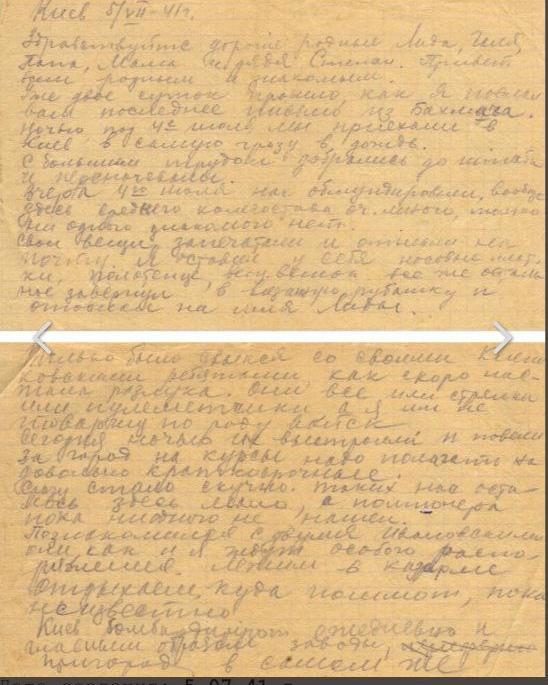 Киев 5/VII-41г.
Здравствуйте дорогие родные Лида, Галя,
Папа, Мама и дядя Степан. Привет
всем родным и знакомым.
Уже двое суток прошло как я послал
вам последнее письмо из Бахмача.
Ночью под 4е июля мы приехали в
Киев в самую грязь в дождь.
С большим трудом добрались до штаба
и переночевали.
Вчера 4го июля нас обмундировали, вообще
здесь среднего комсостава оч. много, только
ни одного знакомого нет.
Свои вещи запечатали и отнесли на
почту. Я оставил у себе носовые плат-
ки, полотенце, все же осталь
ное завернул в вязаную рубашку и
отослал на имя Лиды.
Только было свыкся со своими
ковскими ребятами как скоро нас-
тала разлука. Они все или стрелки
или пулеметчики а я им не
товарищ по роду войск
Сегодня ночью их выстроили и повели
за город на курсы надо полагать на
довольно краткосрочные.
Сразу стало скучно. Таких нас оста-
лось здесь мало, а
пока ни одного не нашел.
Познакомился с двумя Ивановскими
они как и я ждут особого распо-
ряжения. Лежим в казарме
отдыхаем, куда пошлют, пока
неизвестно
Киев бомбардируют ежедневно и
главным образом заводы,
пригород, в самом же
5.07.41 г.